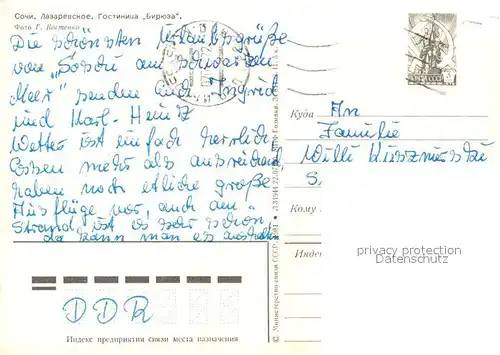 Сочи. Лазаревское. Гостиница „Бирюза".
Фото Г. Костенко
Die schönsten Urlaubsgrüße
von "Sotschi am schwarzen
Meer" senden Euch Ingrid
und Karl-Heinz
Wetter ist einfach herrlich
Essen mehr als ausreichend
haben noch etliche große
Ausflüge vor, auch am
Strand ist es sehr schön
da kann man es aushalten
Куда
An
Familie
Willi
Кому
Индекс
privacy protection
Datenschutz
DDR
Индекс предприятия связи места назначения
© Министерство связи СССР